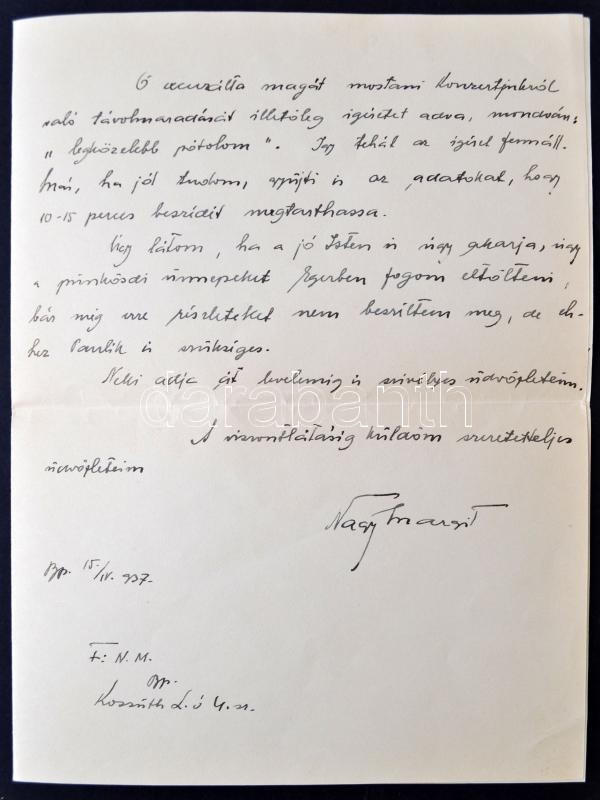 Ő excuzálta magát mostani Konzertjükről
való távolmaradását illetőleg igéretet adva, mondván:
„legközelebb pótolom". Igy tehát az igéret fennáll.
Már, ha jól tudom, gyüjti is az adatokat, hogy
10-15 perces beszédét megtarthassa.
Úgy látom, ha a jó Isten is úgy akarja, úgy
a pünkösdi ünnepeket Egerben fogom eltölteni,
bár még erre részleteket nem beszéltem meg, de eh-
hez Paulik is szükséges.
Neki adja át levelemig is szivélyes üdvözleteim.
darabanth
A viszontlátásig küldöm szeretetteljes
üdvözleteim
Nagy Margit
Bp. 15/IV. 937.
F: N. M.
Bp.
Kossuth L. ú 4. sz.